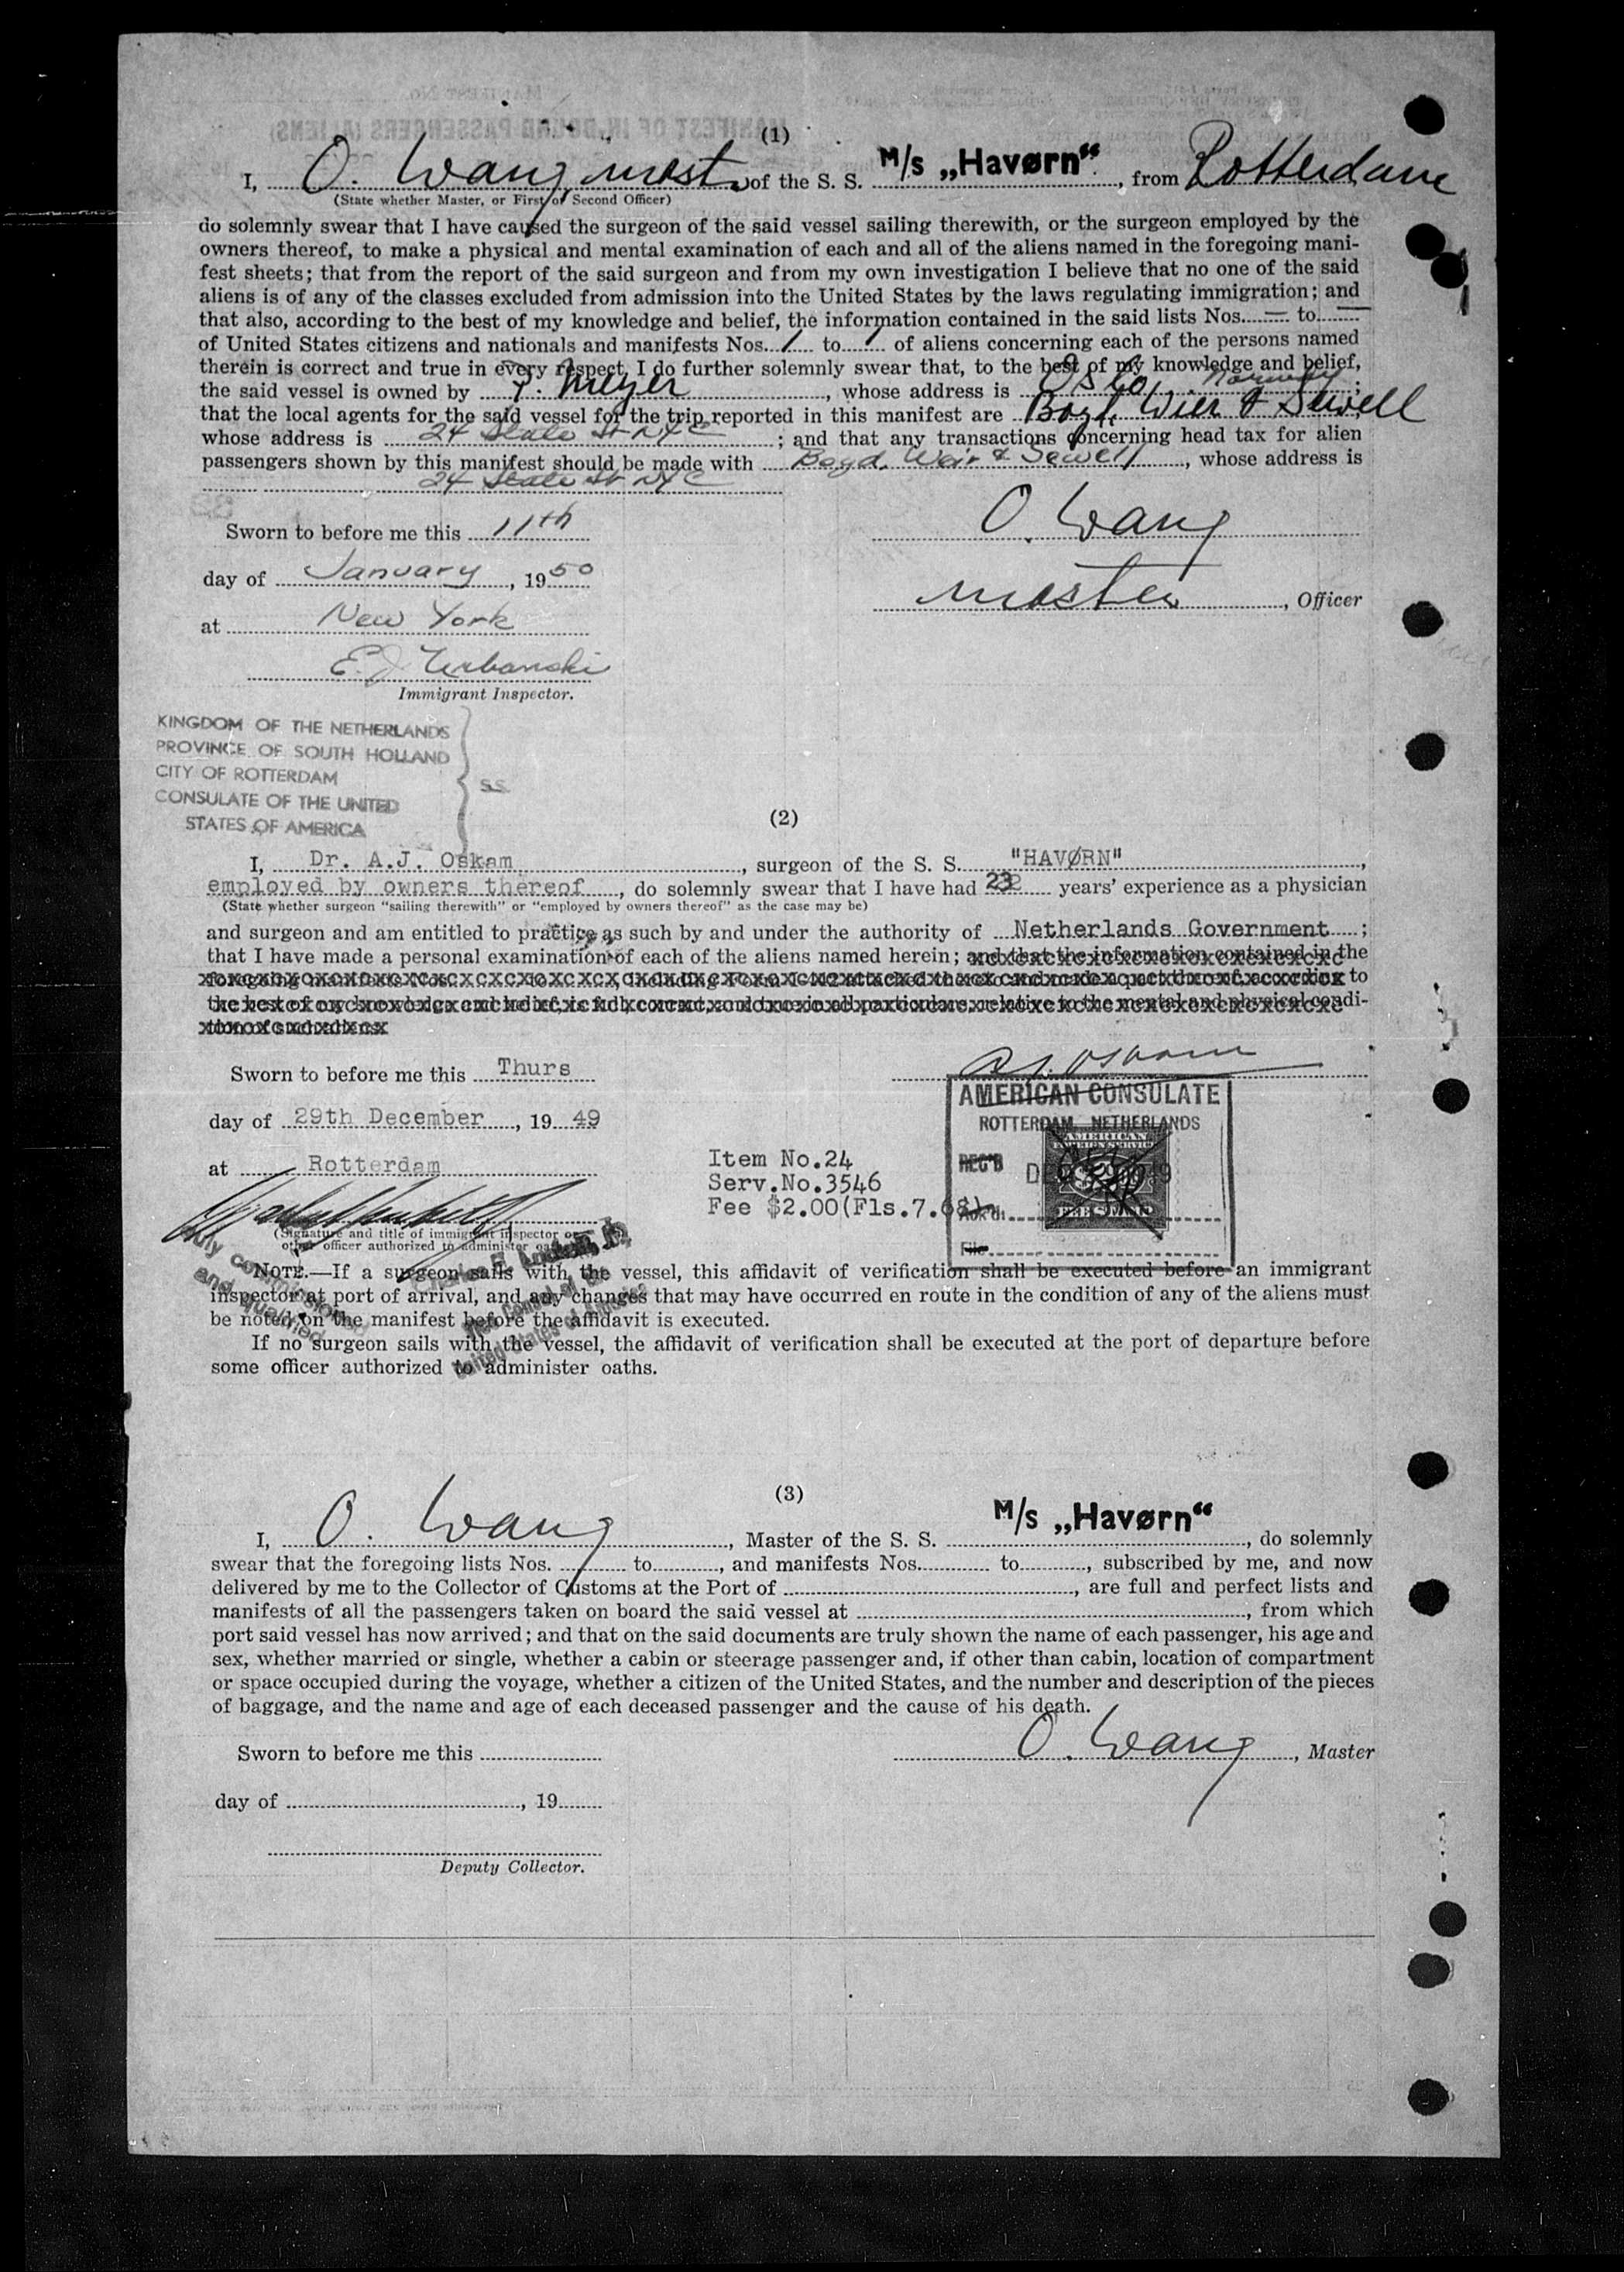 (1)
I, O. Wang, mast. of the S. S. M/s „Havørn“, from Rotterdam
(State whether Master, or First or Second Officer)
do solemnly swear that I have caused the surgeon of the said vessel sailing therewith, or the surgeon employed by the
owners thereof, to make a physical and mental examination of each and all of the aliens named in the foregoing mani-
fest sheets; that from the report of the said surgeon and from my own investigation I believe that no one of the said
aliens is of any of the classes excluded from admission into the United States by the laws regulating immigration; and
that also, according to the best of my knowledge and belief, the information contained in the said lists Nos. — to —
of United States citizens and nationals and manifests Nos. 1 to 1 of aliens concerning each of the persons named
therein is correct and true in every respect, I do further solemnly swear that, to the best of my knowledge and belief,
the said vessel is owned by P. Meyer, whose address is Oslo Norway;
that the local agents for the said vessel for the trip reported in this manifest are Boyd, Wier & Sewell
whose address is 24 State St NYC; and that any transactions concerning head tax for alien
passengers shown by this manifest should be made with Boyd, Weir & Sewell, whose address is
24 State St NYC
Sworn to before me this 11th
O. Wang
day of January, 1950
master, Officer
at New York
E. J Urbanski
Immigrant Inspector.
KINGDOM OF THE NETHERLANDS
PROVINCE OF SOUTH HOLLAND
CITY OF ROTTERDAM
SS
CONSULATE OF THE UNITED
STATES OF AMERICA
(2)
I, Dr. A.J. Oskam, surgeon of the S. S. "HAVØRN",
employed by owners thereof, do solemnly swear that I have had 23 years' experience as a physician
(State whether surgeon "sailing therewith" or "employed by owners thereof" as the case may be)
and surgeon and am entitled to practice as such by and under the authority of Netherlands Government;
that I have made a personal examination of each of the aliens named herein; and that the information contained in the
foregoing manifests Nos. to , including Form I-412 attached thereto and made a part thereof, according to
the best of my knowledge and belief, is full, correct, and true in all particulars relative to the mental and physical condi-
tion of such aliens
Sworn to before me this Thurs
A.J. Oskam
day of 29th December, 19 49
at Rotterdam
Item No.24
Serv.No.3546
Fee $2.00(Fls.7.68)
AMERICAN CONSULATE
ROTTERDAM, NETHERLANDS
REC'D DEC 29 1949
AMERICAN
FOREIGN SERVICE
FEE STAMP
Ack'd
File
(Signature and title of immigrant inspector or
other officer authorized to administer oaths)
duly commissioned
and qualified
Vice Consul of the
United States of America
NOTE.—If a surgeon sails with the vessel, this affidavit of verification shall be executed before an immigrant
inspector at port of arrival, and any changes that may have occurred en route in the condition of any of the aliens must
be noted on the manifest before the affidavit is executed.
If no surgeon sails with the vessel, the affidavit of verification shall be executed at the port of departure before
some officer authorized to administer oaths.
(3)
I, O. Wang, Master of the S. S. M/s „Havørn“, do solemnly
swear that the foregoing lists Nos. to, and manifests Nos. to, subscribed by me, and now
delivered by me to the Collector of Customs at the Port of , are full and perfect lists and
manifests of all the passengers taken on board the said vessel at , from which
port said vessel has now arrived; and that on the said documents are truly shown the name of each passenger, his age and
sex, whether married or single, whether a cabin or steerage passenger and, if other than cabin, location of compartment
or space occupied during the voyage, whether a citizen of the United States, and the number and description of the pieces
of baggage, and the name and age of each deceased passenger and the cause of his death.
Sworn to before me this
O. Wang, Master
day of , 19
Deputy Collector.